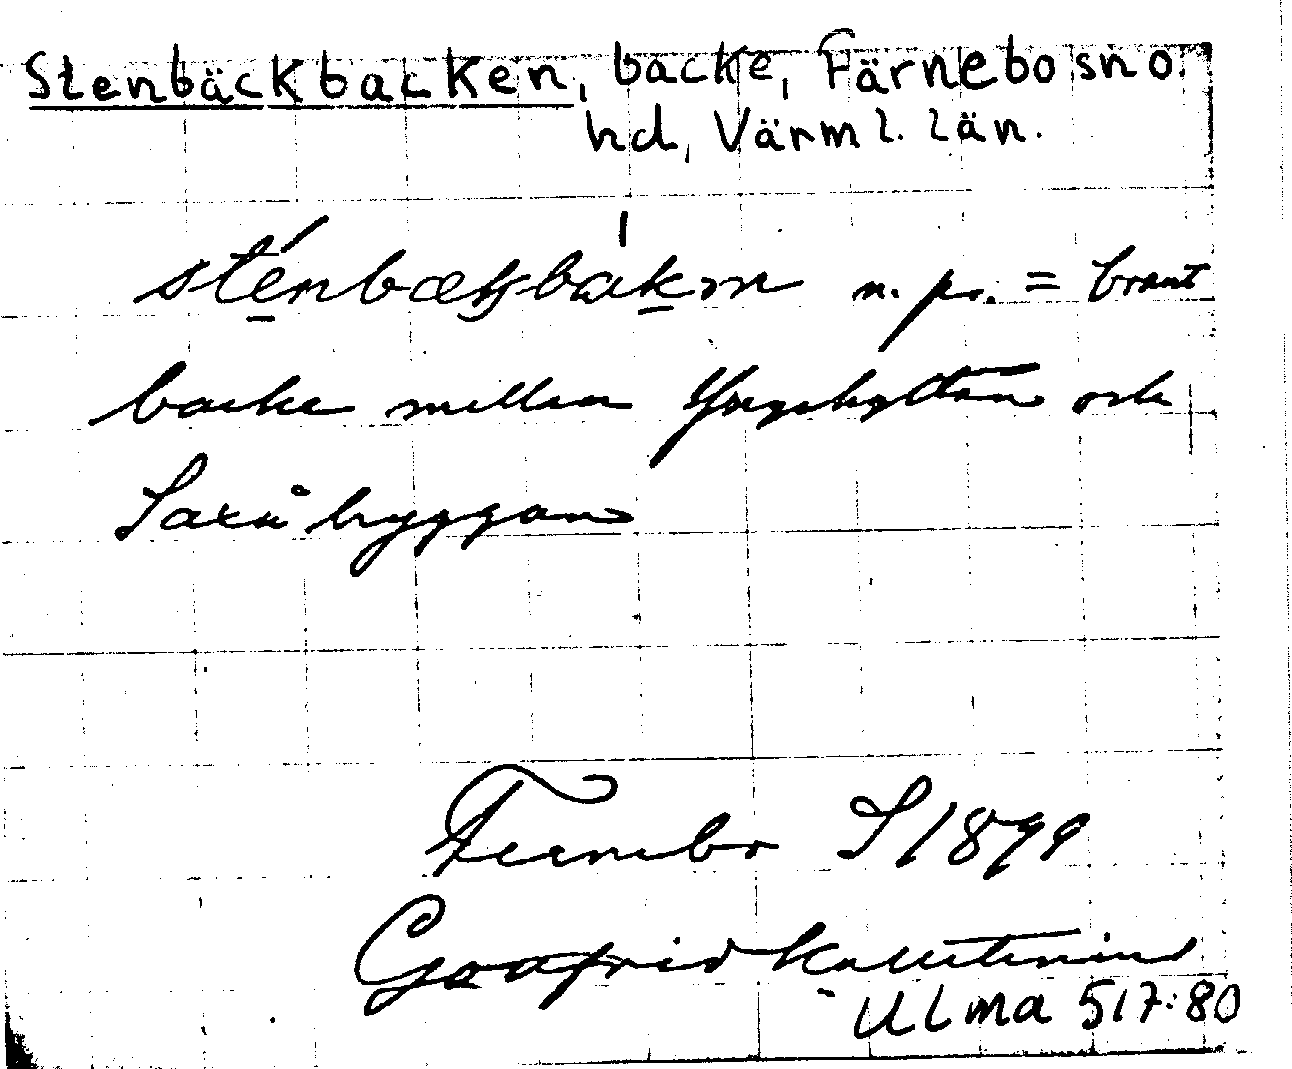 Stenbäckbacken, backe, Färnebo sn o.
hd, Värml. län.
sténbæksbakm n. pr. = brant
backe mellan Yngshyttan och
Saxåbryggan
Fernebo S 1899
Gottfrid Kallstenius
ULMA 517:80